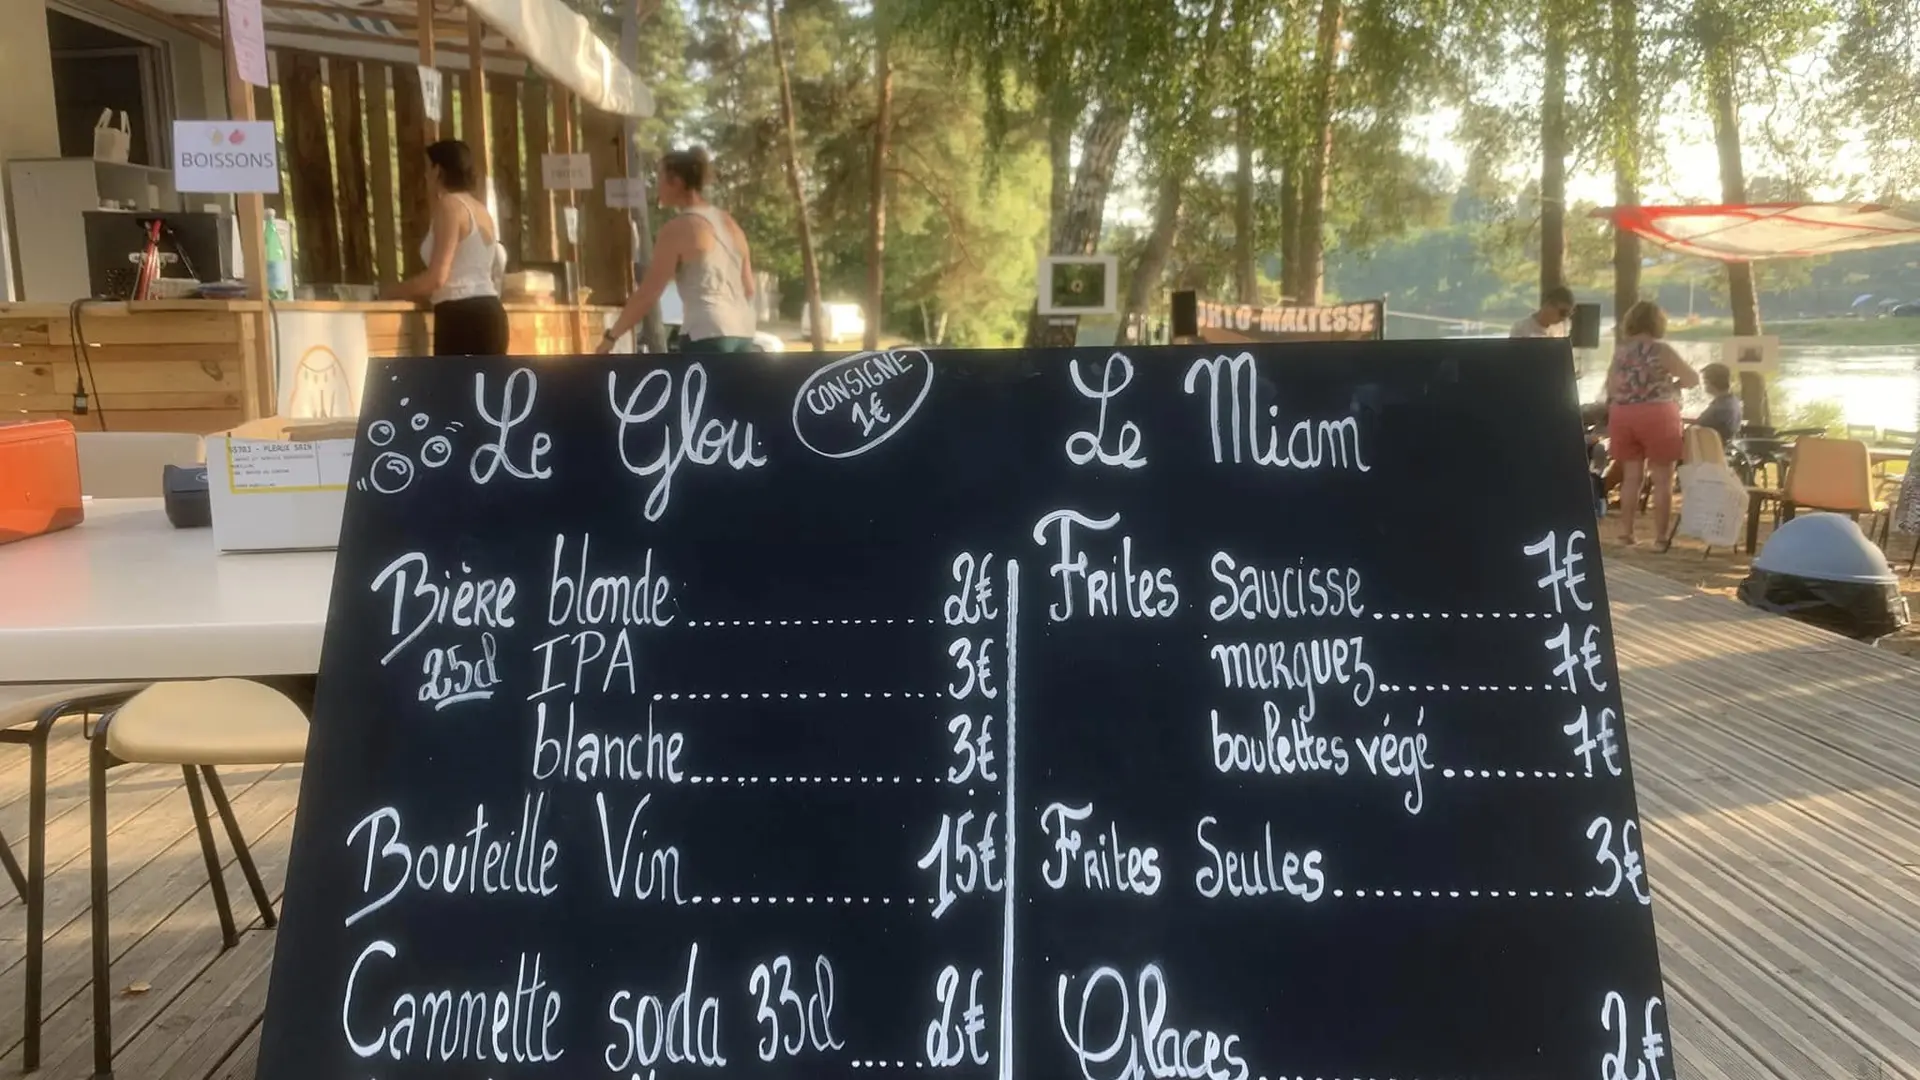 BOISSONS
ORTO-MALTESSE
Le Glou
CONSIGNE
1€
Bière blonde ........ 2€
25cl IPA ........ 3€
blanche ........ 3€
Bouteille Vin ........ 15€
Cannette soda 33cl ..... 2€
Le Miam
Frites saucisse ........ 7€
merguez ........ 7€
boulettes végé ........ 7€
Frites Seules ........ 3€
Glaces ........ 2€